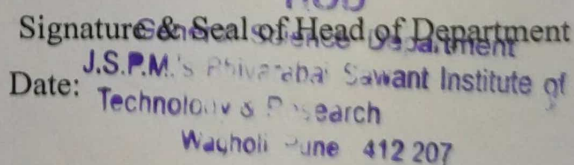 HOD
Signature & Seal of Head of Department
J.S.P.M.'s Bhivarabai Sawant Institute of
Date:
Technology & Research
Wagholi Pune 412 207